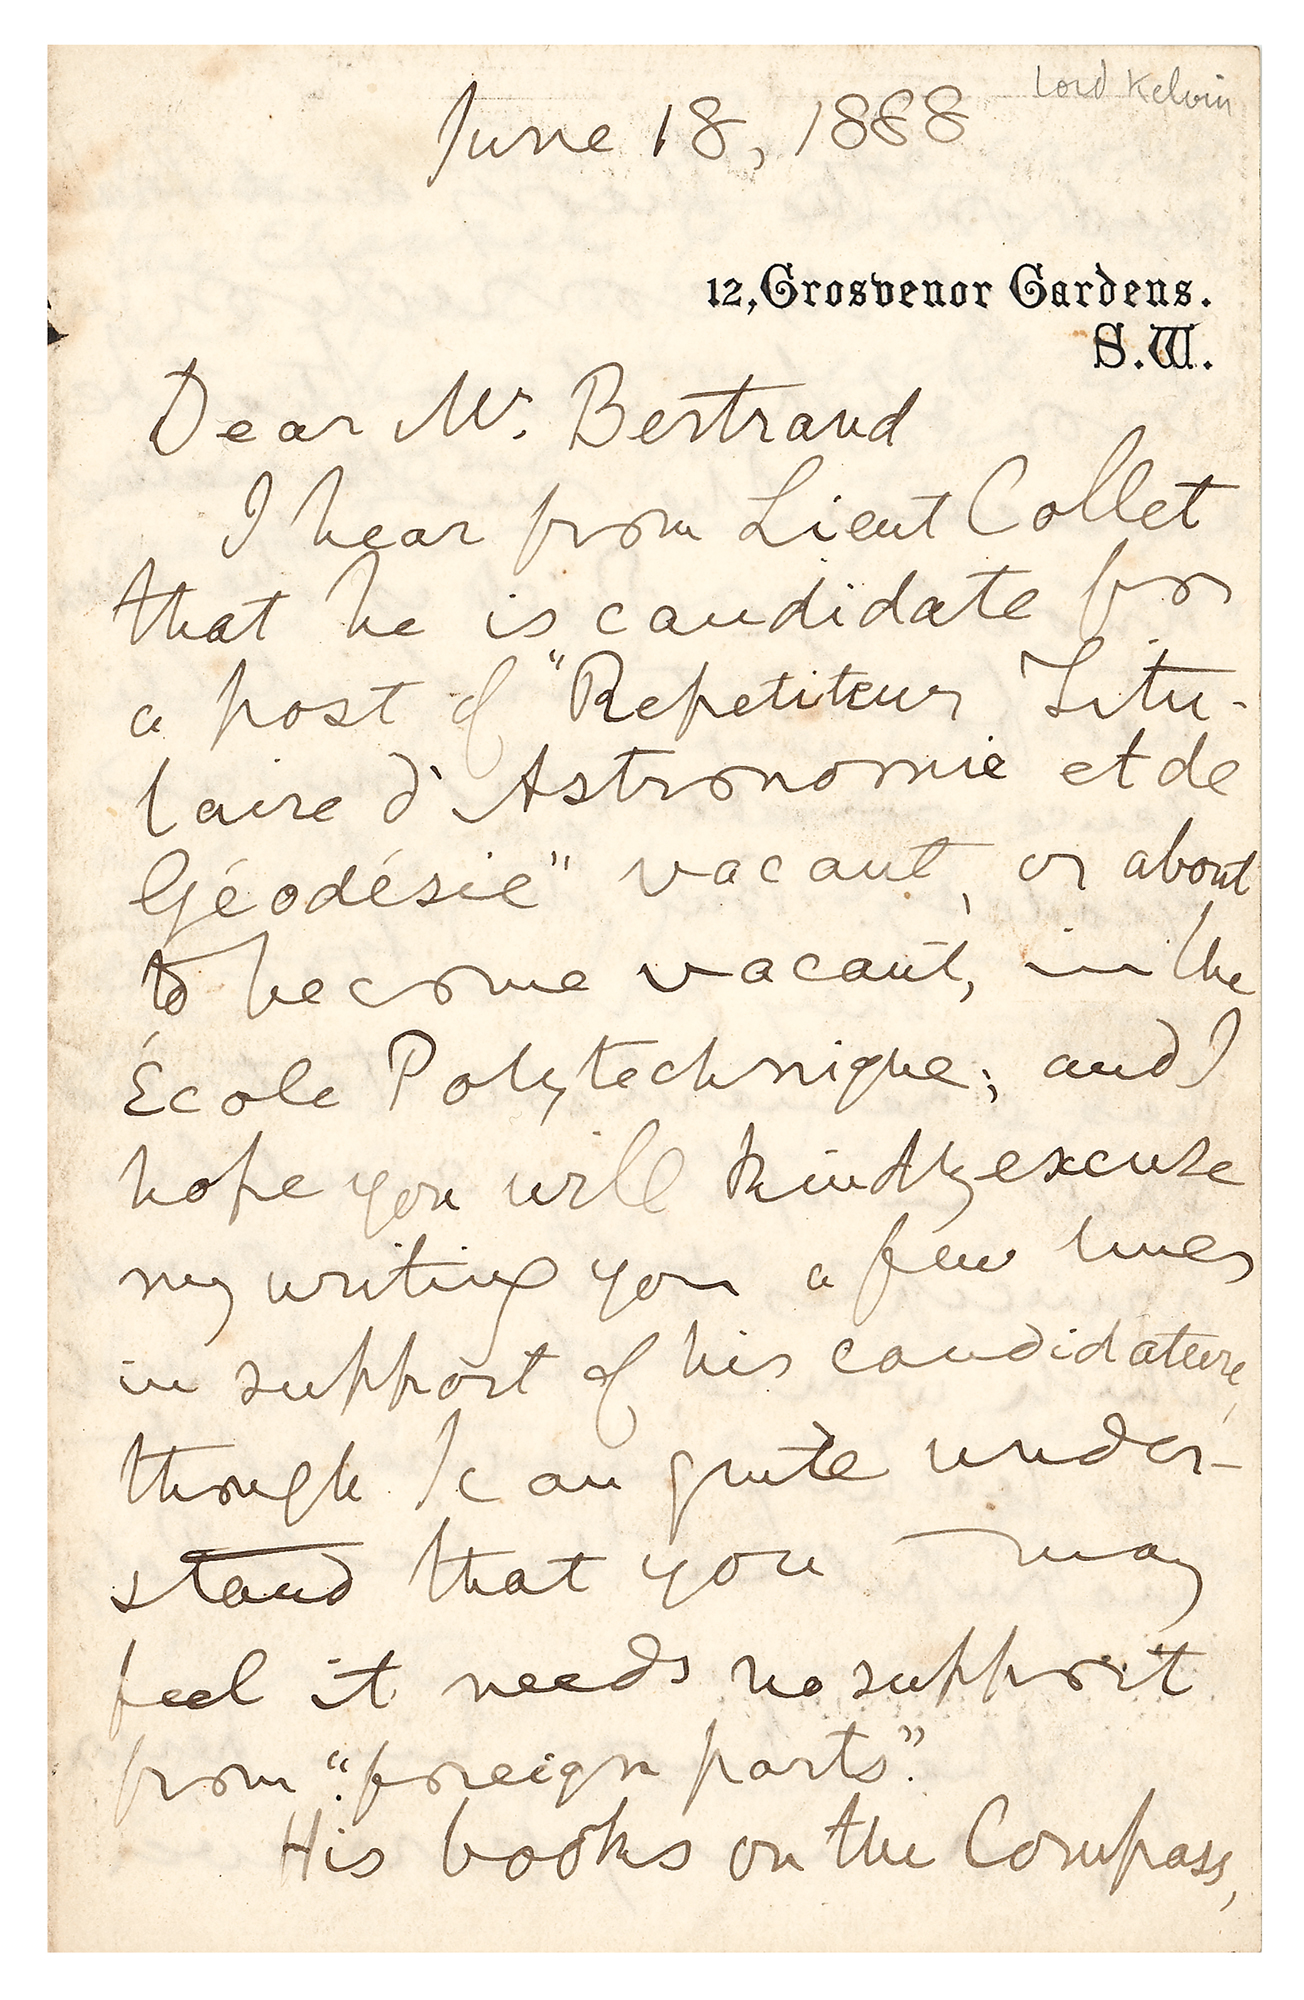 Lord Kelvin
June 18, 1888
12, Grosvenor Gardens.
S.W.
Dear Mr. Bertrand
I hear from Lieut Collet
that he is candidate for
a post of "Repetiteur Titu-
laire d'Astronomie et de
Géodésie" vacant, or about
to become vacant, in the
École Polytechnique; and I
hope you will kindly excuse
my writing you a few lines
in support of his candidature,
though I can quite under-
stand that you may
feel it needs no support
from "foreign parts".
His books on the Compass,